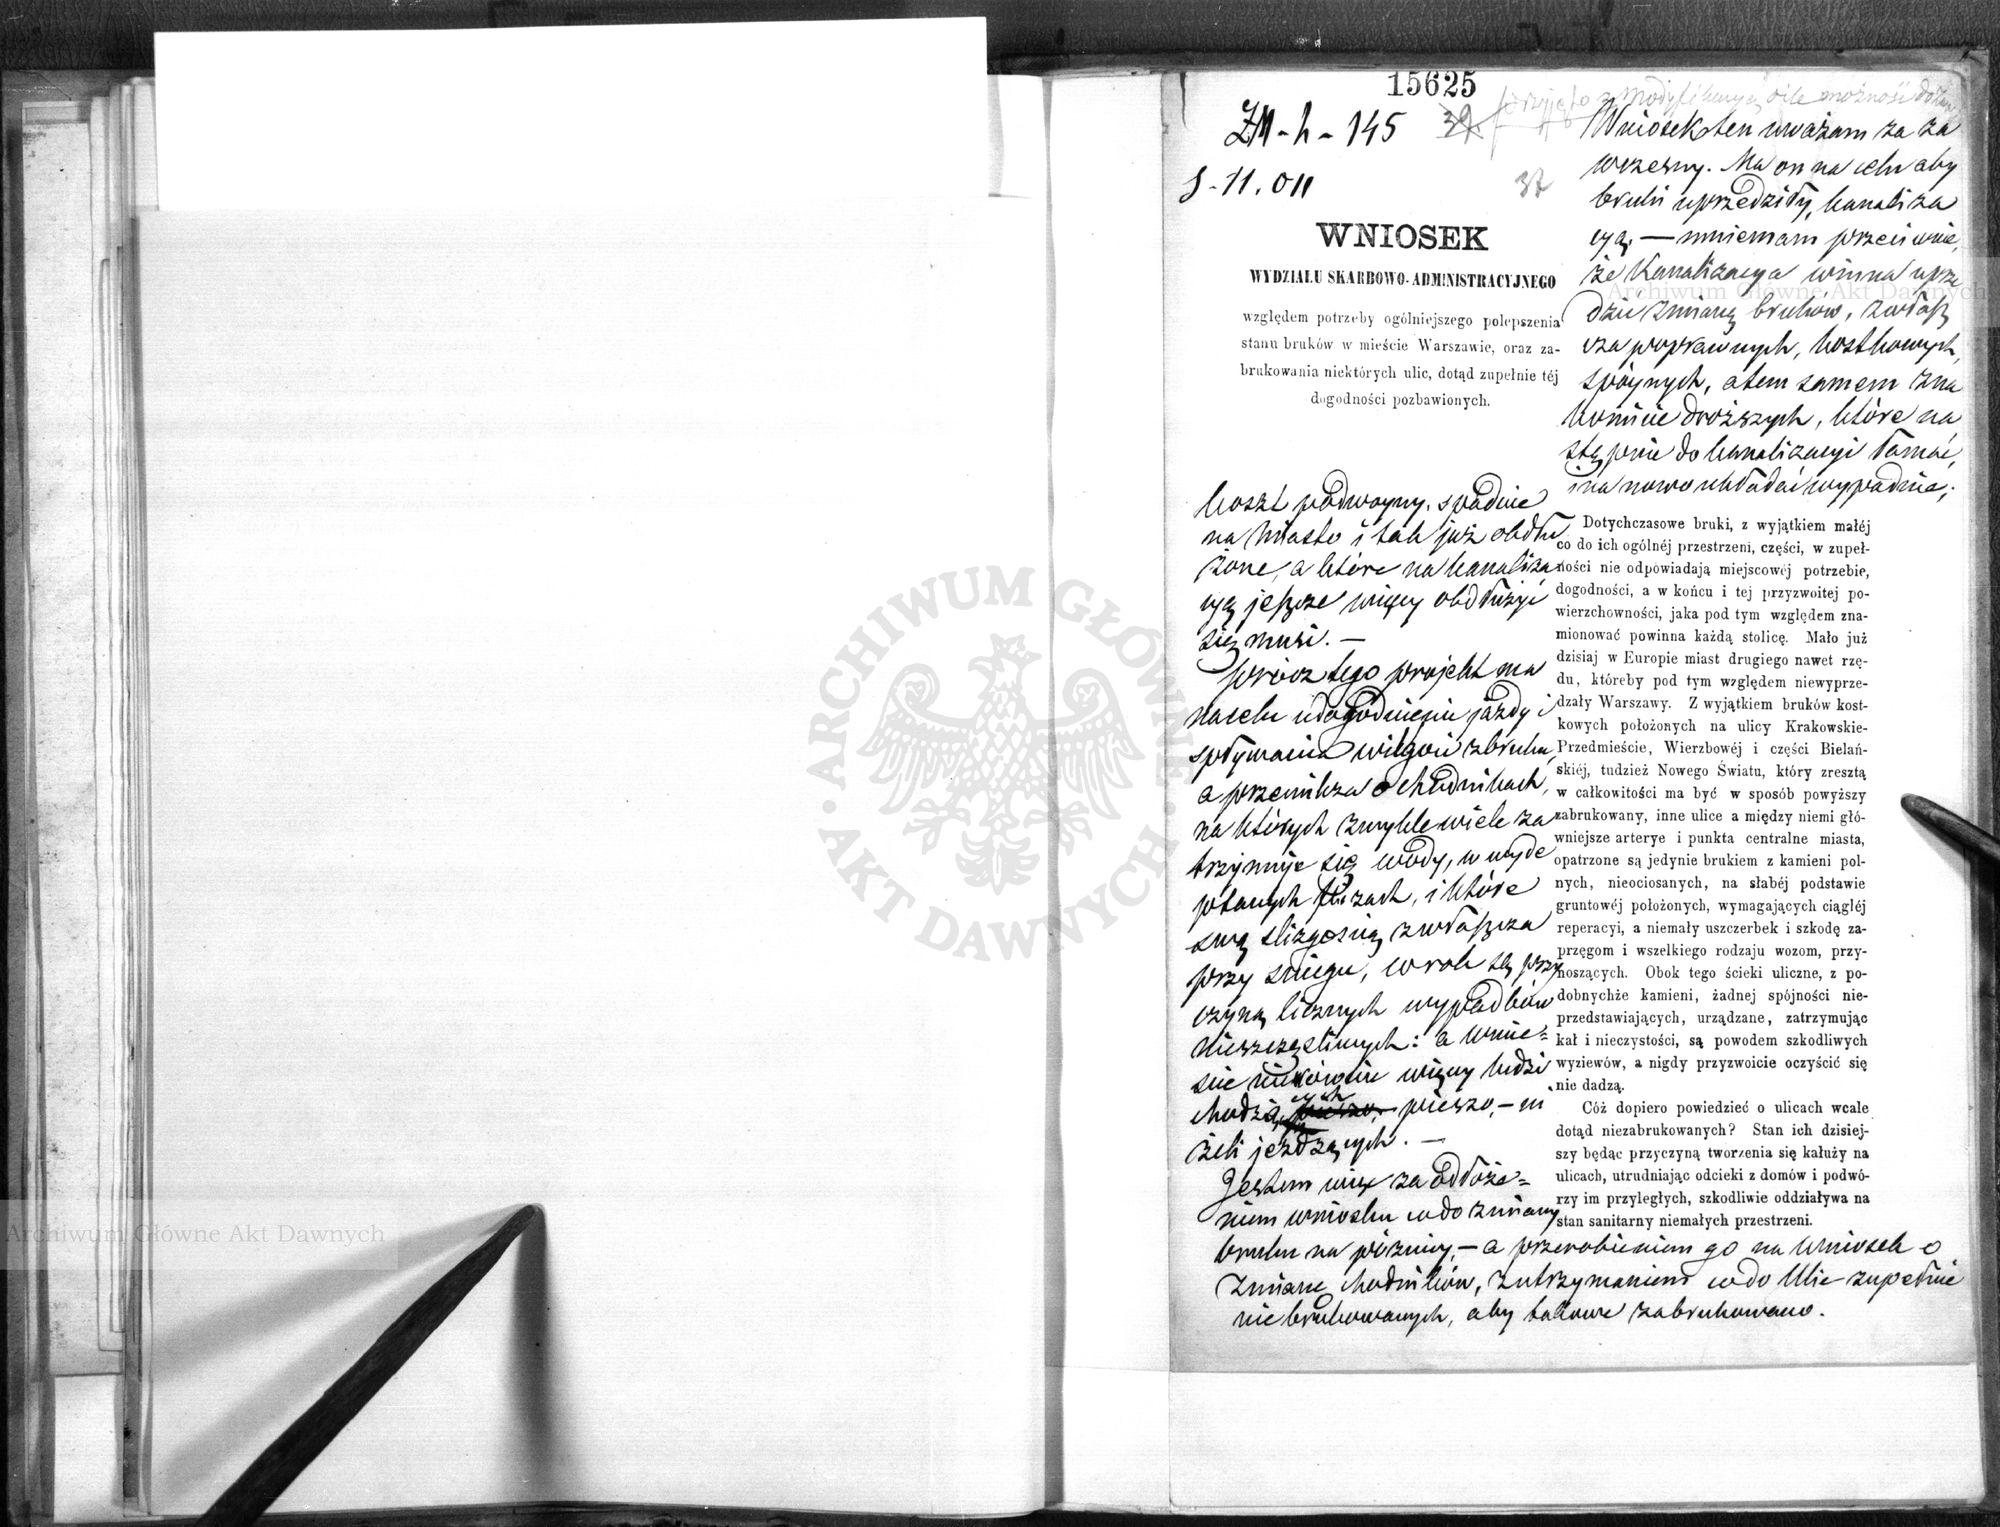 15625
ZM-h-145
39.
przyjęto z modyfikacyą o ile możności
S-11.011
37
WNIOSEK
WYDZIAŁU SKARBOWO-ADMINISTRACYJNEGO
względem potrzeby ogólniejszego polepszenia
stanu bruków w mieście Warszawie, oraz za-
brukowania niektórych ulic, dotąd zupełnie téj
dogodności pozbawionych.
Wniosek ten uważam za za
wczesny. Ma on na celu aby
bruki uprzedziły kanaliza
cyą. — mniemam przeciwnie,
że Kanalizacya winna uprze
dzić zmianę bruków, zwłasz
cza poprawnych, kostkowych,
spójnych, a tem samem zna
komicie droższych, które na
stępnie do kanalizacyi łamać,
i na nowo układać wypadnie;
koszt podwójny, spadnie
na Miasto i tak już obdłu
żone, a które na kanaliza
cyą jeszcze więcy obdłużyć
się musi. —
Prócz tego projekt ma
na celu udogodnienie jazdy i
spływania wilgoci z bruku,
a przemilcza o chodnikach,
na których zwykle wiele za
trzymuje się wody, w wyde
ptanych flizach, i które
swą slizgością zwłaszcza
przy śniegu, w rok są przy
czyną licznych wypadków
nieszczęśliwych: a w mie=
ście nierównie więcy ludzi
chodzących pieszo, — ni
żeli jeżdzących. —
Jestem więc za odłoże=
niem wniosku co do zmiany
bruku na późniey, — a przerobieniem go na Wniosek o
zmianę chodników, z utrzymaniem co do Ulic zupełnie
niebrukowanych, aby takowe zabrukowano.
Dotychczasowe bruki, z wyjątkiem małéj
co do ich ogólnéj przestrzeni, części, w zupeł-
ności nie odpowiadają miejscowéj potrzebie,
dogodności, a w końcu i tej przyzwoitej po-
wierzchowności, jaka pod tym względem zna-
mionować powinna każdą stolicę. Mało już
dzisiaj w Europie miast drugiego nawet rzę-
du, któreby pod tym względem niewyprze-
dzały Warszawy. Z wyjątkiem bruków kost-
kowych położonych na ulicy Krakowskie-
Przedmieście, Wierzbowéj i części Bielań-
skiéj, tudzież Nowego Światu, który zresztą
w całkowitości ma być w sposób powyższy
zabrukowany, inne ulice a między niemi głó-
wniejsze arterye i punkta centralne miasta,
opatrzone są jedynie brukiem z kamieni pol-
nych, nieociosanych, na słabéj podstawie
gruntowéj położonych, wymagających ciągléj
reperacyi, a niemały uszczerbek i szkodę za-
przęgom i wszelkiego rodzaju wozom, przy-
noszących. Obok tego ścieki uliczne, z po-
dobnychże kamieni, żadnej spójności nie-
przedstawiających, urządzane, zatrzymując
kał i nieczystości, są powodem szkodliwych
wyziewów, a nigdy przyzwoicie oczyścić się
nie dadzą.
Cóż dopiero powiedzieć o ulicach wcale
dotąd niezabrukowanych? Stan ich dzisiej-
szy będąc przyczyną tworzenia się kałuży na
ulicach, utrudniając odcieki z domów i podwó-
rzy im przyległych, szkodliwie oddziaływa na
stan sanitarny niemałych przestrzeni.
ARCHIWUM GŁÓWNE AKT DAWNYCH
Archiwum Główne Akt Dawnych
Archiwum Główne Akt Dawnych